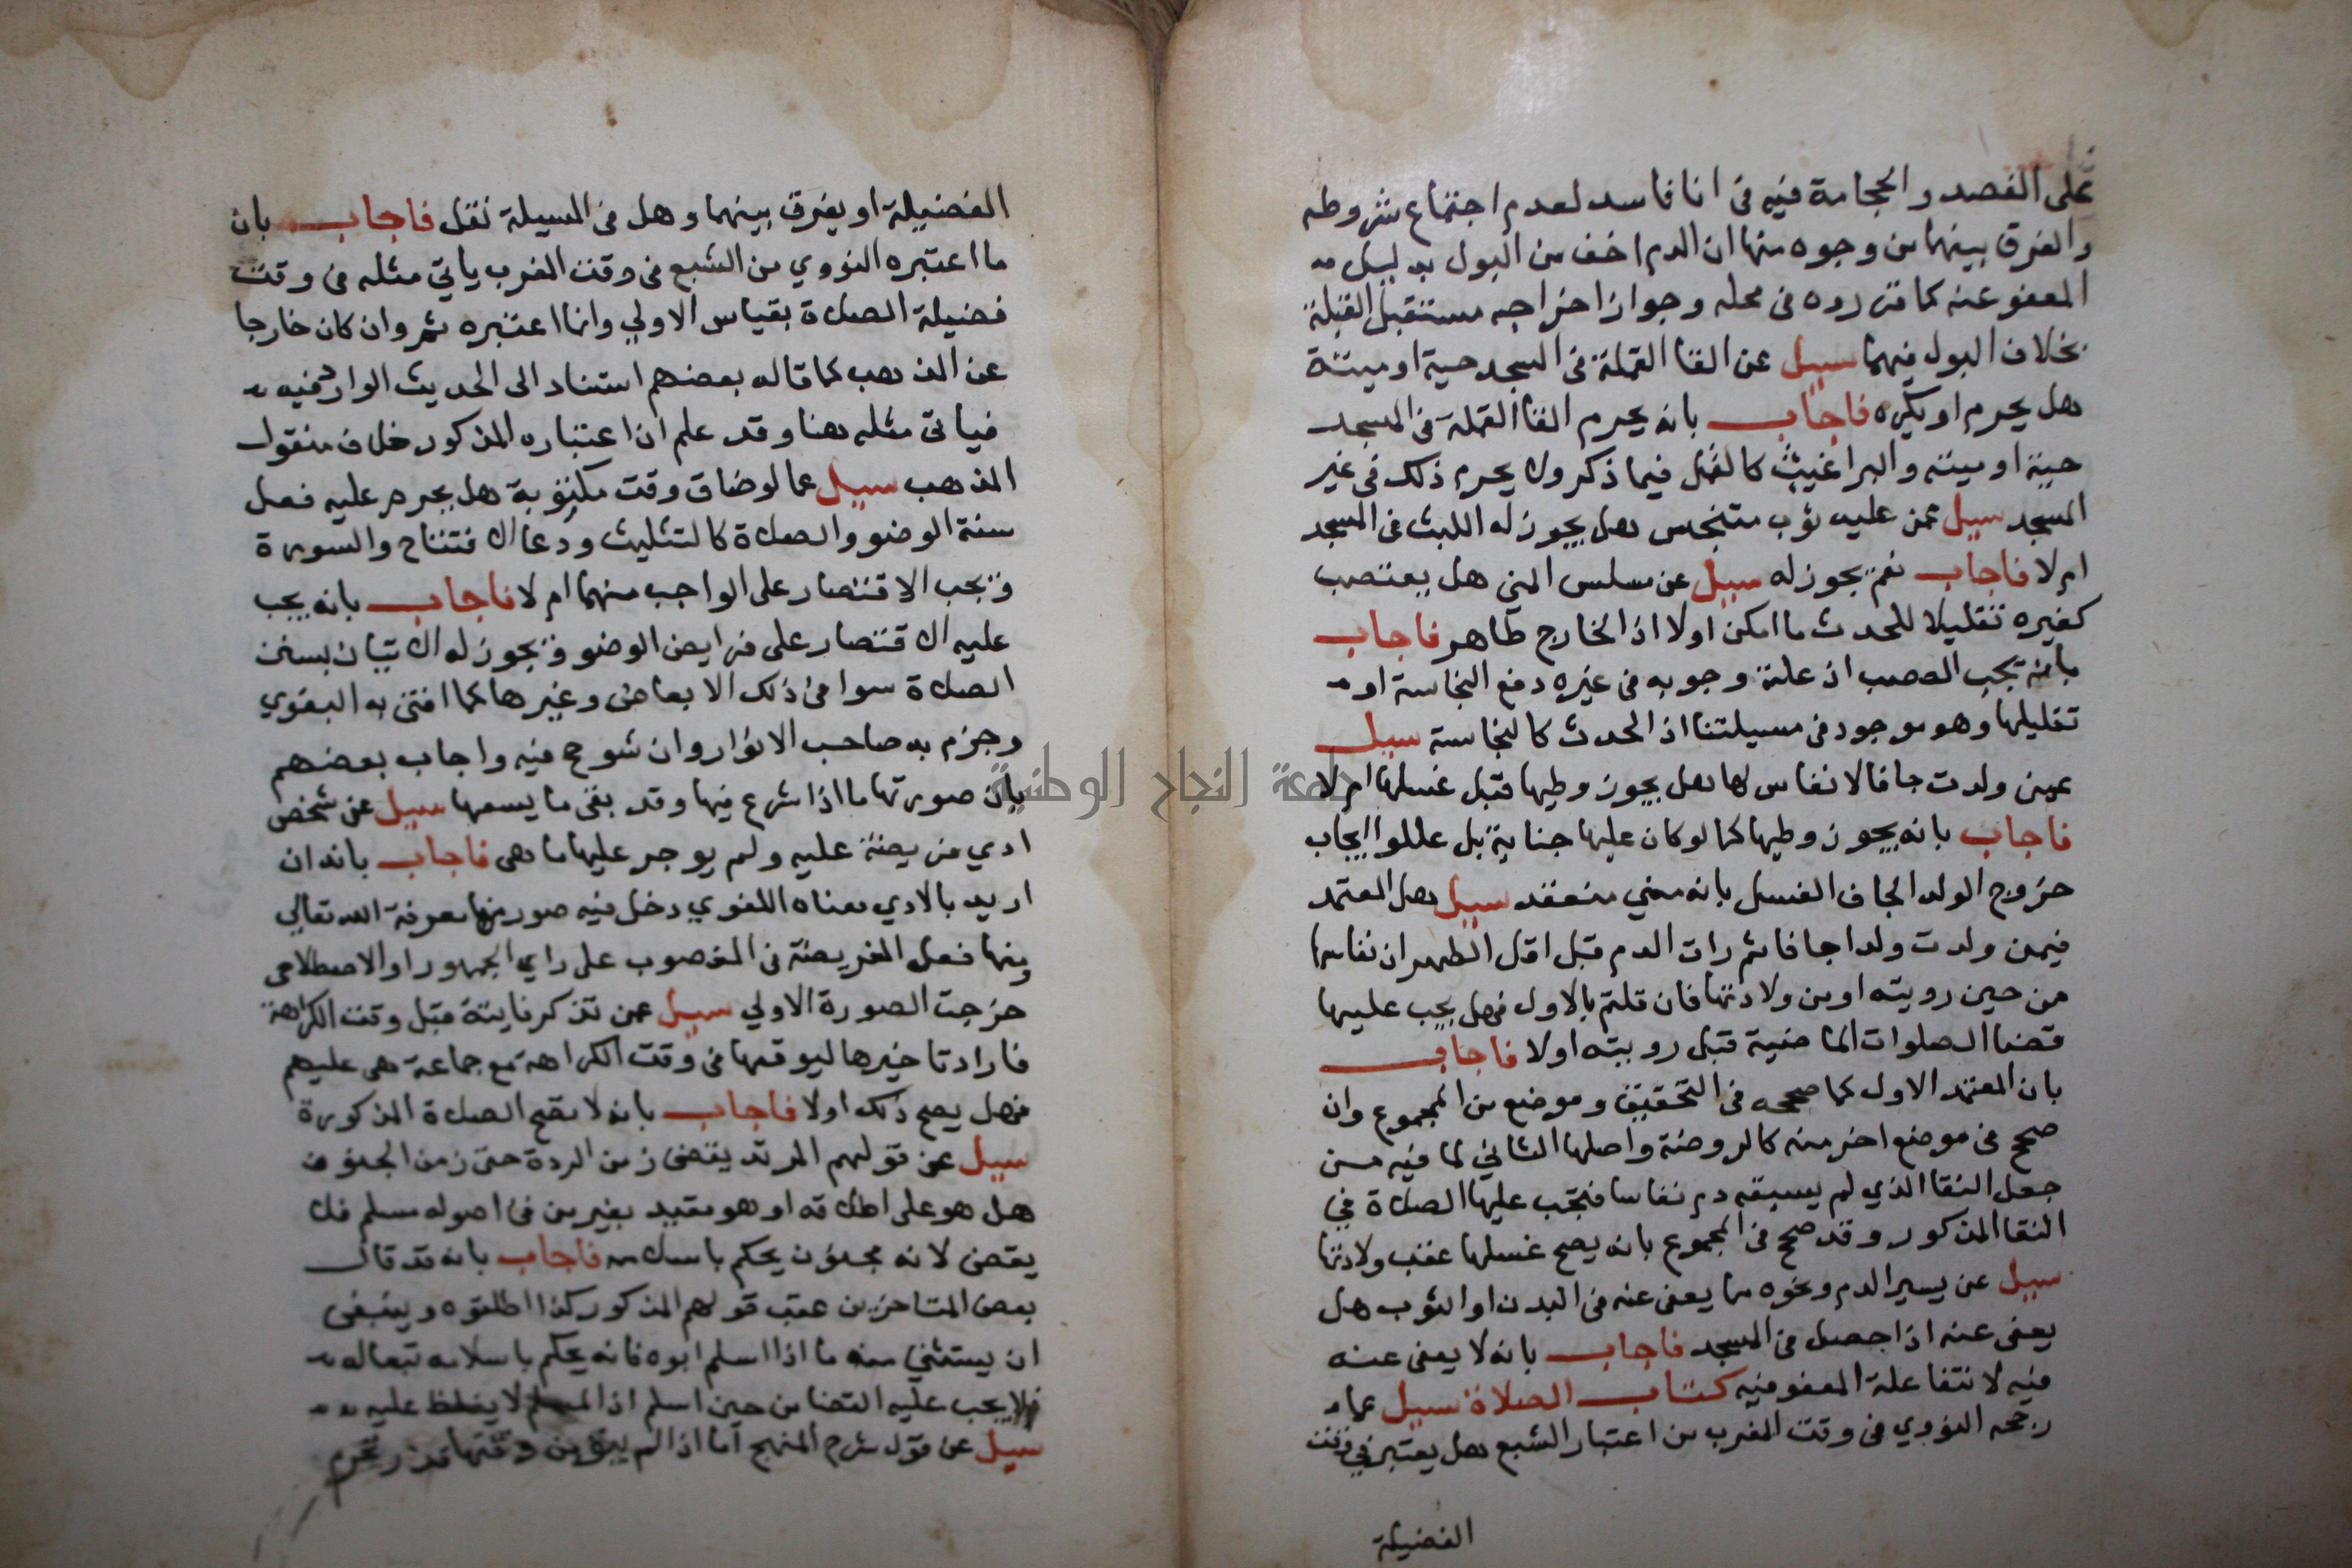 على الفصد والحجامة فيه في انا فاسد لعدم اجتماع شروطه
والفرق بينهما من وجوه منها ان الدم اخف من البول بدليل
المعفو عنه كما قرروه في محله وجواز اخراجه مستقبل القبلة
بخلاف البول فيهما سيل عن القا القملة في المسجد حية او ميتة
هل يحرم او يكره فاجاب بانه يحرم القا القملة في المسجد
حية او ميتة والبراغيث كالقمل فيما ذكر ولا يحرم ذلك في غير
المسجد سيل عمن عليه ثوب متنجس هل يجوز له اللبث في المسجد
ام لا فاجاب نعم يجوز له سيل عن سلس المني هل يعتصب
كغيره تقليلا للحدث ما امكن اولا اذ الخارج طاهر فاجاب
بانه يجب العصب اذ علة وجوبه في غيره دفع النجاسة او
تقليلها وهو موجود في مسيلتنا اذ الحدث كالنجاسة سيل
عمن ولدت جافا لا نفاس لها هل يجوز وطيها قبل غسلها ام لا
فاجاب بانه يجوز وطيها كما لو كان عليها جنابة بل عللوا ايجاب
خروج الولد الجاف الغسل بانه مني منعقد سيل هل المعتمد
فيمن ولدت ولدا جافا ثم رات الدم قبل اقل الطهر ان نفاسها
من حين رويته او من ولادتها فان قلتم بالاول فهل يجب عليها
قضا الصلوات الماضية قبل رويته اولا فاجاب
بان المعتمد الاول كما صححه في التحقيق وموضع من المجموع وان
صحح في موضع اخر منه كالروضة واصلها الثاني لما فيه من
جعل النقا الذي لم يسبقه دم نفاسا فتجب عليها الصلاة في
النقا المذكور وقد صحح في المجموع بانه يصح غسلها عقب ولادتها
سيل عن يسير الدم ونحوه مما يعفى عنه في البدن او الثوب هل
يعفى عنه اذا حصل في المسجد فاجاب بانه لا يعفى عنه
فيه لانتفا علة العفو فيه كتاب الصلاة سيل عما
رجحه النووي في وقت المغرب من اعتبار الشبع هل يعتبر في وقت
الفضيلة
الفضيلة او يفرق بينهما وهل في المسيلة نقل فاجاب بان
ما اعتبره النووي من الشبع في وقت المغرب ياتي مثله في وقت
فضيلة الصلاة بقياس الاولي وانما اعتبره ثم وان كان خارجا
عن المذهب كما قاله بعضهم استناد الى الحديث الوارد فيه
فياتي مثله هنا وقد علم ان اعتباره المذكور خلاف منقول
المذهب سيل عما لو ضاق وقت مكتوبة هل يحرم عليه فعل
سنة الوضو والصلاة كالتثليث ودعا الافتتاح والسورة
ويجب الاقتصار على الواجب منهما ام لا فاجاب بانه يجب
عليه الاقتصار على فرايض الوضو ويجوز له الاتيان بسنن
الصلاة سوا في ذلك الابعاض وغيرها كما افتى به البغوي
وجزم به صاحب الانوار وان شوحح فيه واجاب بعضهم
بان صورتها ما اذا شرع فيها وقد بقي ما يسعها سيل عن شخص
ادي فريضة عليه ولم يوجر عليها ما هى فاجاب بانه ان
اريد بالادي معناه اللغوي دخل فيه صور منها معرفة الله تعالي
ومنها فعل الفريضة في المغصوب على راي الجمهور او الاصطلاحي
خرجت الصورة الاولي سيل عمن تذكر فايتة قبل وقت الكراهة
فاراد تاخيرها ليوقعها في وقت الكراهة مع جماعة هى عليهم
فهل يصح ذلك اولا فاجاب بانه لا تصح الصلاة المذكورة
سيل عن قولهم المرتد يقضى زمن الردة حتى زمن الجنون
هل هو على اطلاقه او هو مقيد بغير من في اصوله مسلم فلا
يقضى لانه مجنون يحكم باسلامه فاجاب بانه قد قال
بعض المتاخرين عقب قولهم المذكور كذا اطلقوه وينبغى
ان يستثني منه ما اذا اسلم ابوه فانه يحكم باسلامه تبعا له
فلا يجب عليه القضا من حين اسلم اذ المسلم لا يغلظ عليه
سيل عن قول شرح المنهج اما اذا لم يبق من وقتها قدر تحرم